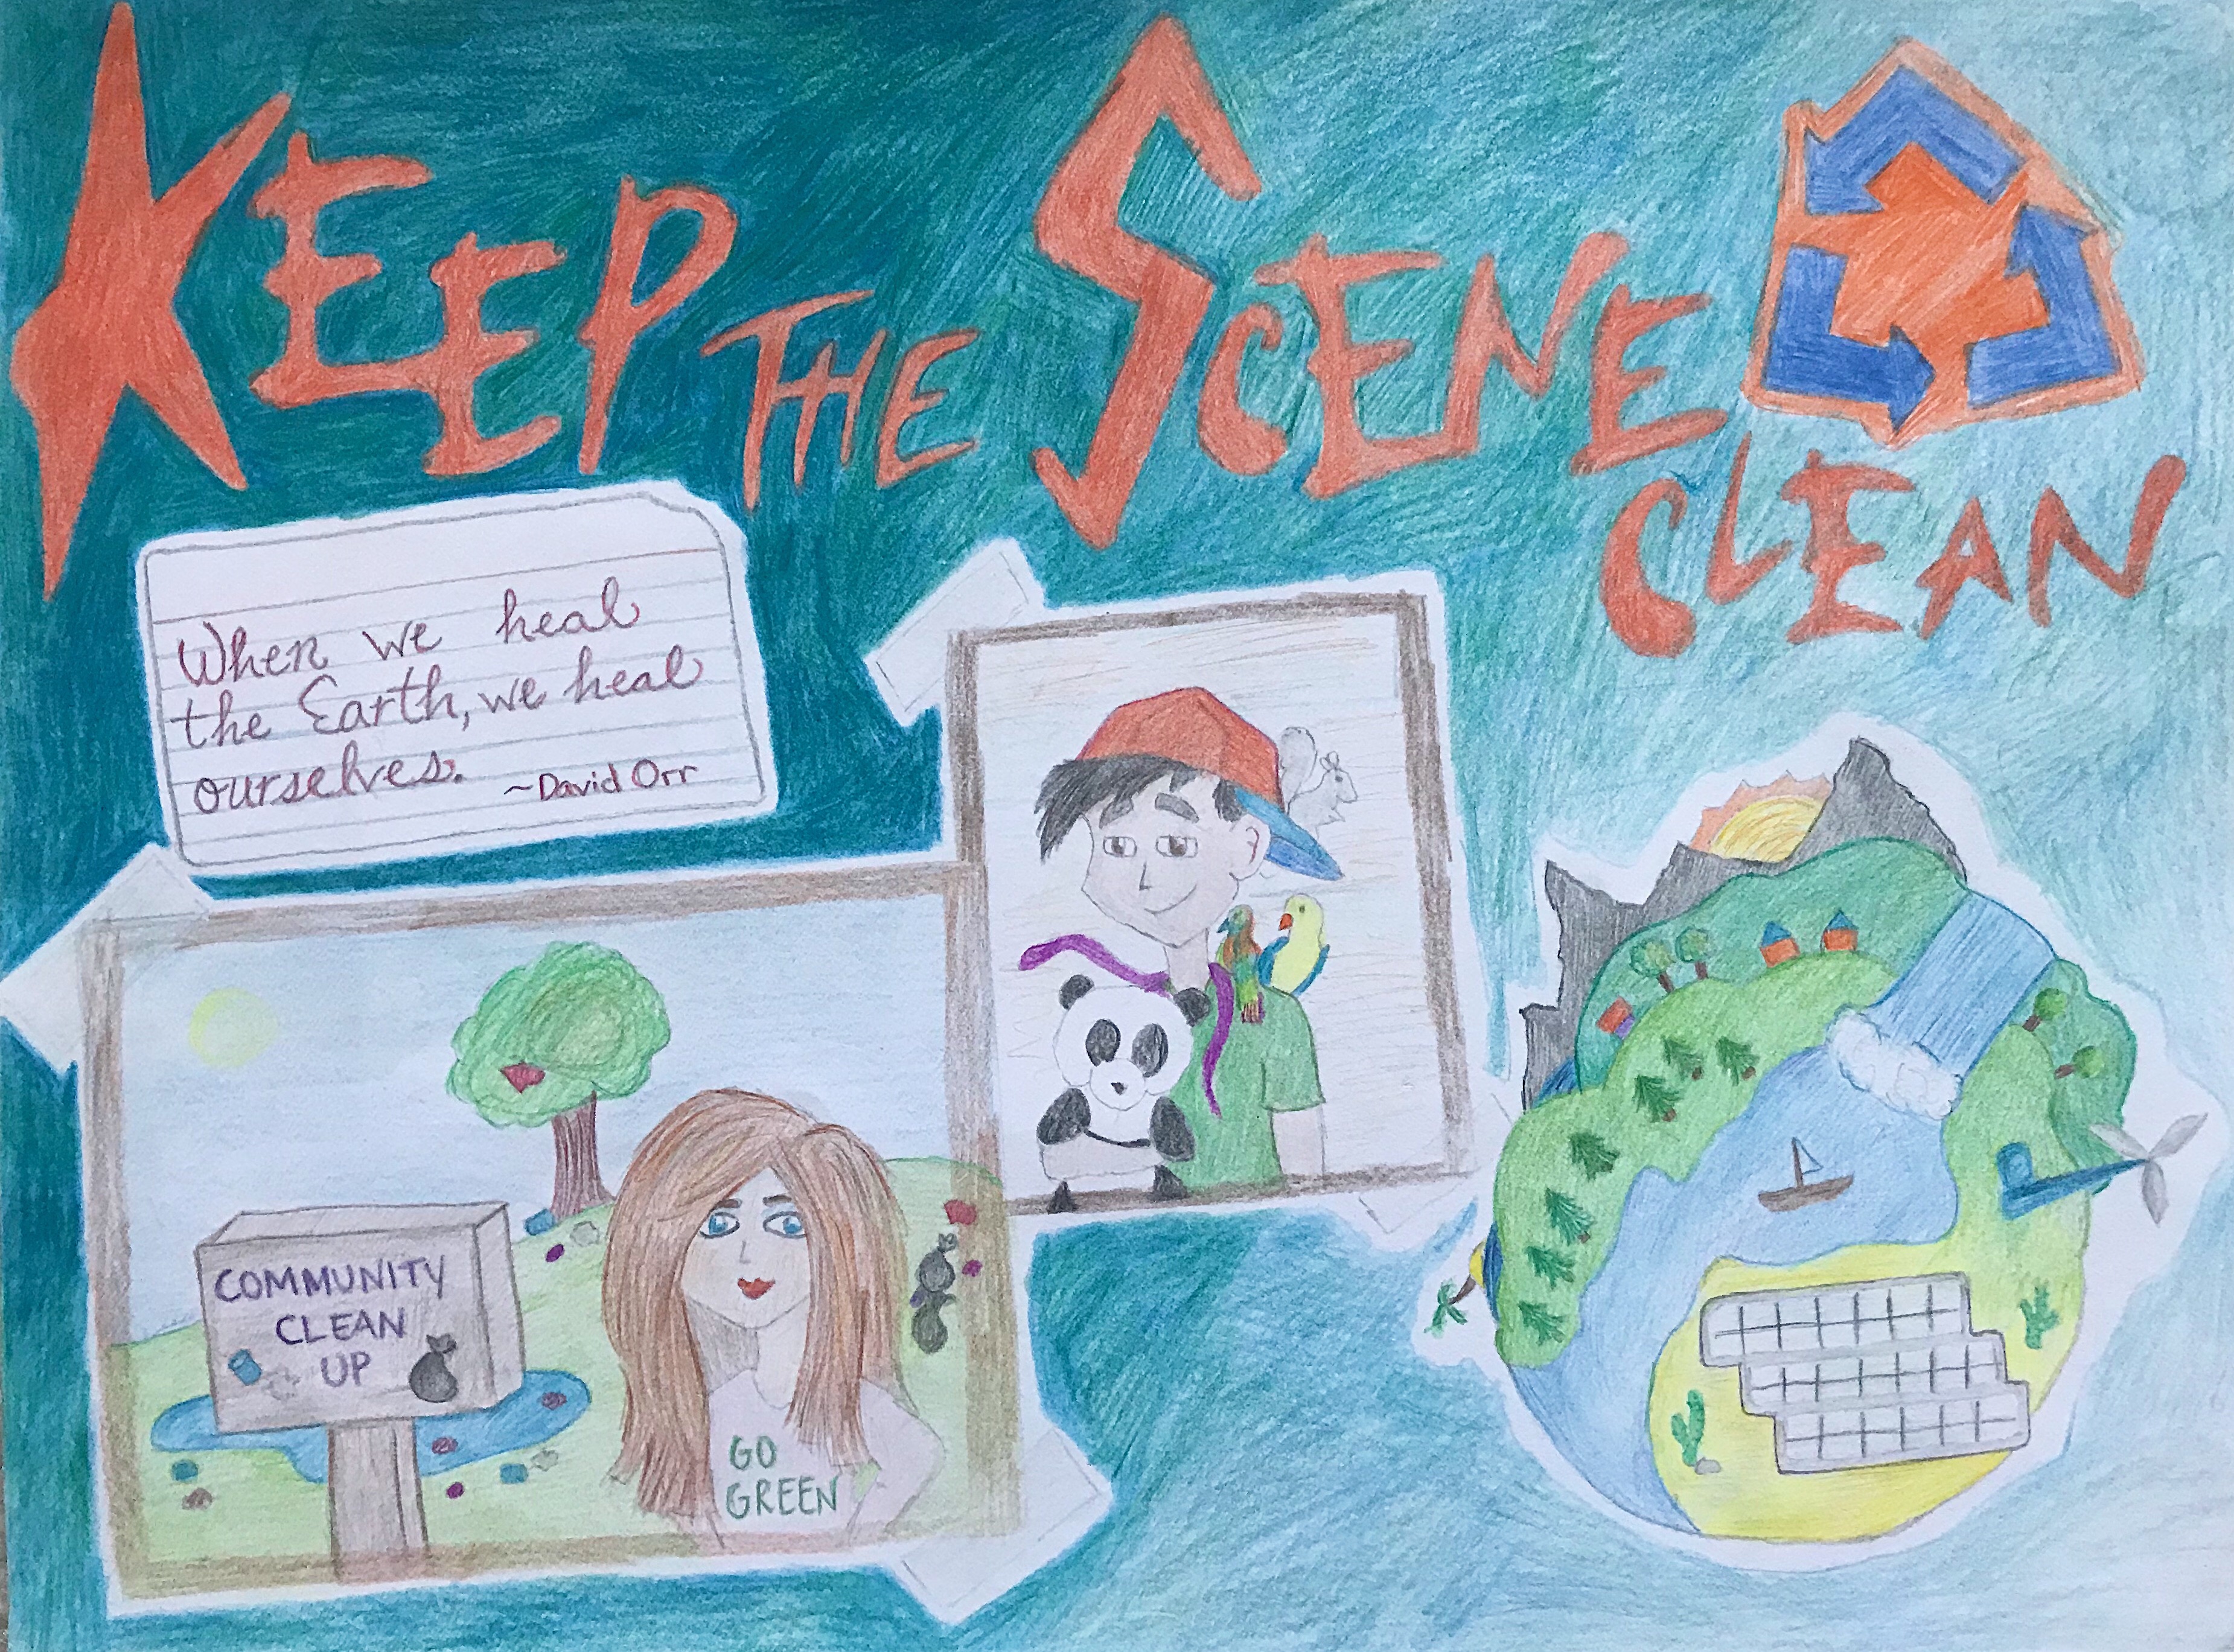 KEEP THE SCENE
CLEAN
When we heal
the Earth, we heal
ourselves.
~David Orr
COMMUNITY
CLEAN
UP
GO
GREEN